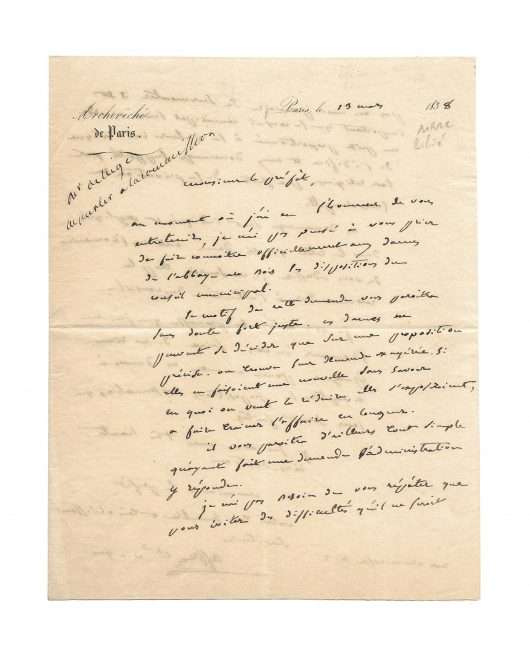 Archevêché
de Paris.
Paris, le 13 mars 1838
de parler à
monsieur le préfet,
au moment où j'ai eu l'honneur de vous
entretenir, je n'ai pas pensé à vous prier
de faire connoître officiellement aux dames
de l'abbaye aux bois les dispositions du
conseil municipal.
le motif de cette demande vous paroîtra
sans doute fort juste. ces dames ne
peuvent se décider que sur une proposition
précise. on trouve leur demande exagérée. si
elles en faisoient une nouvelle sans savoir
en quoi on veut la réduire, elles s'exposeroient
à faire traîner l'affaire en longueur.
il vous paroîtra d'ailleurs tout simple
qu'ayant fait une demande l'administration
y réponde.
je n'ai pas besoin de vous répéter que
pour éviter des difficultés qu'il ne seroit